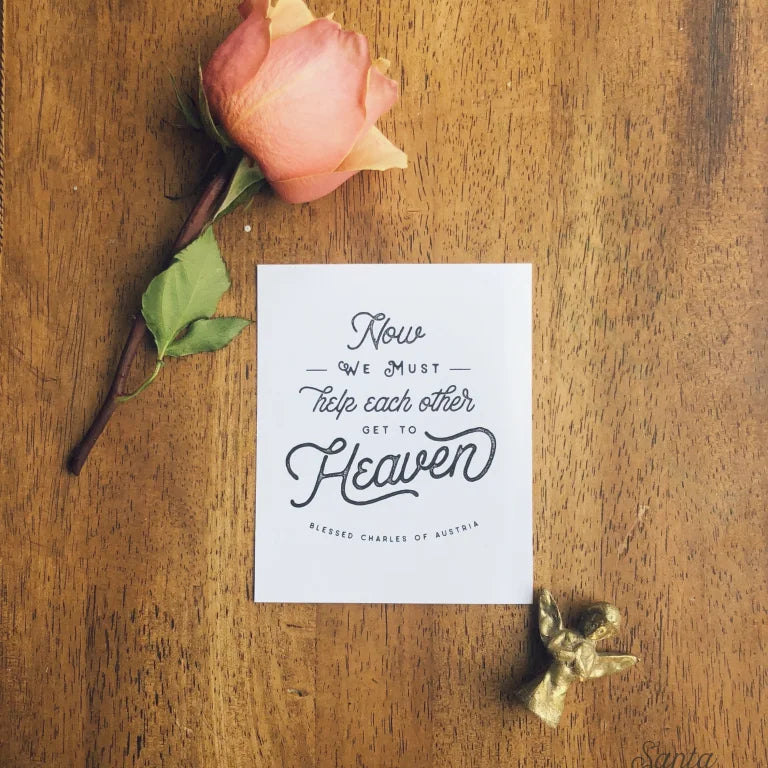 Now
We Must
help each other
GET TO
Heaven
BLESSED CHARLES OF AUSTRIA
Santa